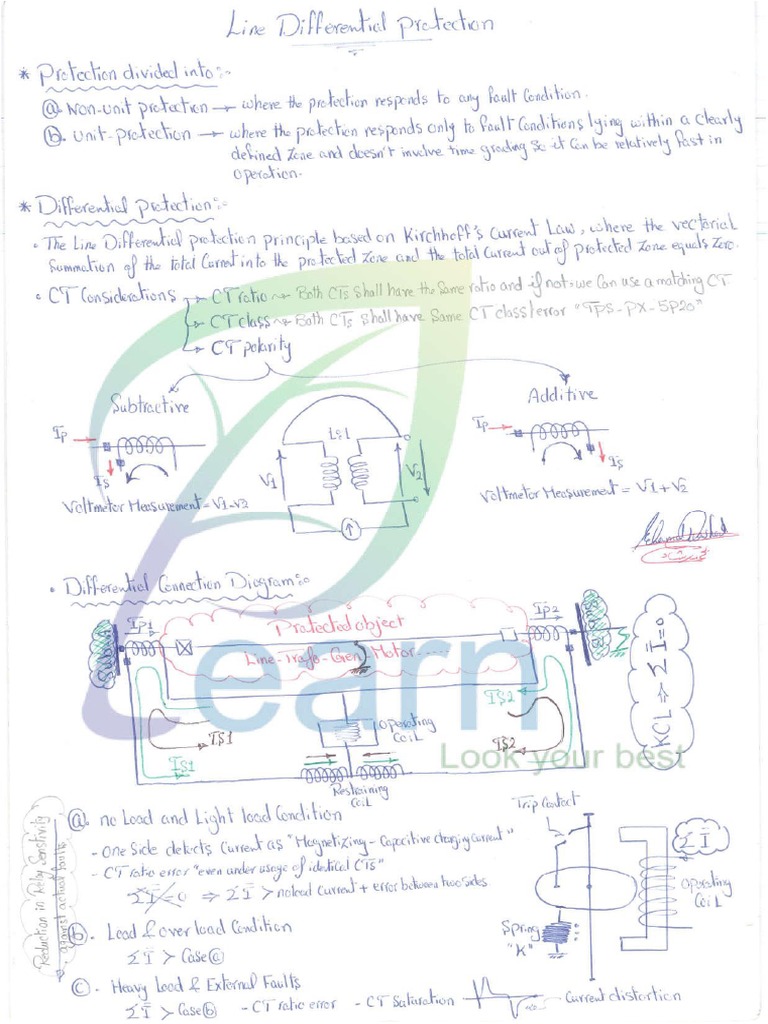 Line Differential Protection
* Protection divided into:-
(a). Non-unit protection → where the protection responds to any fault Condition.
(b). unit-protection → where the protection responds only to fault Conditions lying within a clearly
defined Zone and doesn't involve time grading so it Can be relatively fast in
operation.
* Differential protection:-
• The Line Differential protection principle based on Kirchhoff's Current Law, where the vectorial
Summation of the total Current into the protected Zone and the total Current out of protected Zone equals Zero.
• CT Considerations → CT ratio → Both CTs Shall have the Same ratio and if not, we Can use a matching CT.
→ CT class → Both CTs Shall have Same CT class/error "TPS-PX-5P20"
→ CT polarity
Subtractive
Additive
Ip
Is
1:1
V1
V2
Ip
Is
Voltmeter Measurement = V1-V2
Voltmeter Measurement = V1+V2
• Differential Connection Diagram:-
Ip1
Protected object
Ip2
Line-Trafo-Gen-Motor-----
KCL ⇒ Σ Ī=0
earn
Look your best
IS1
IS1
Operating
CoiL
IS2
IS2
Restraining
CoiL
Reduction in Relay Sensitivity
against actual faults
(a). no Load and Light load Condition
- One Side detects Current as "Magnetizing-Capacitive charging Current"
- CT ratio error "even under usage of identical CTs"
Σ Ī = 0 ⇒ Σ Ī > noload Current + error between two sides
(b). Load & over load Condition
Σ Ī > Case (a)
(c). Heavy Load & External Faults
Σ Ī > Case (b) - CT ratio error - CT Saturation → Current distortion
Trip Contact
Σ Ī
Operating
CoiL
Spring
"K"